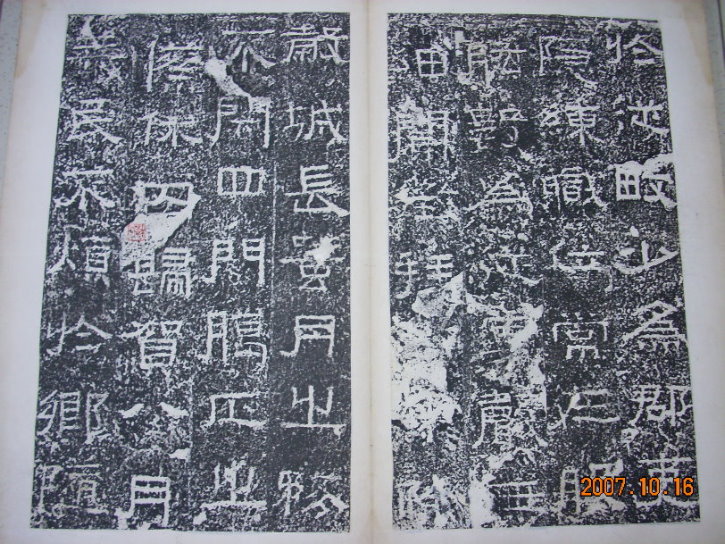 於從畋少為郡吏
隱練職位常在股
肱數為從事聲無
細聞徵拜除
穀城長蠶月之務
不閉四門臘正之
祭休囚歸賀八月
筭民不煩於鄉隨
2007.10.16